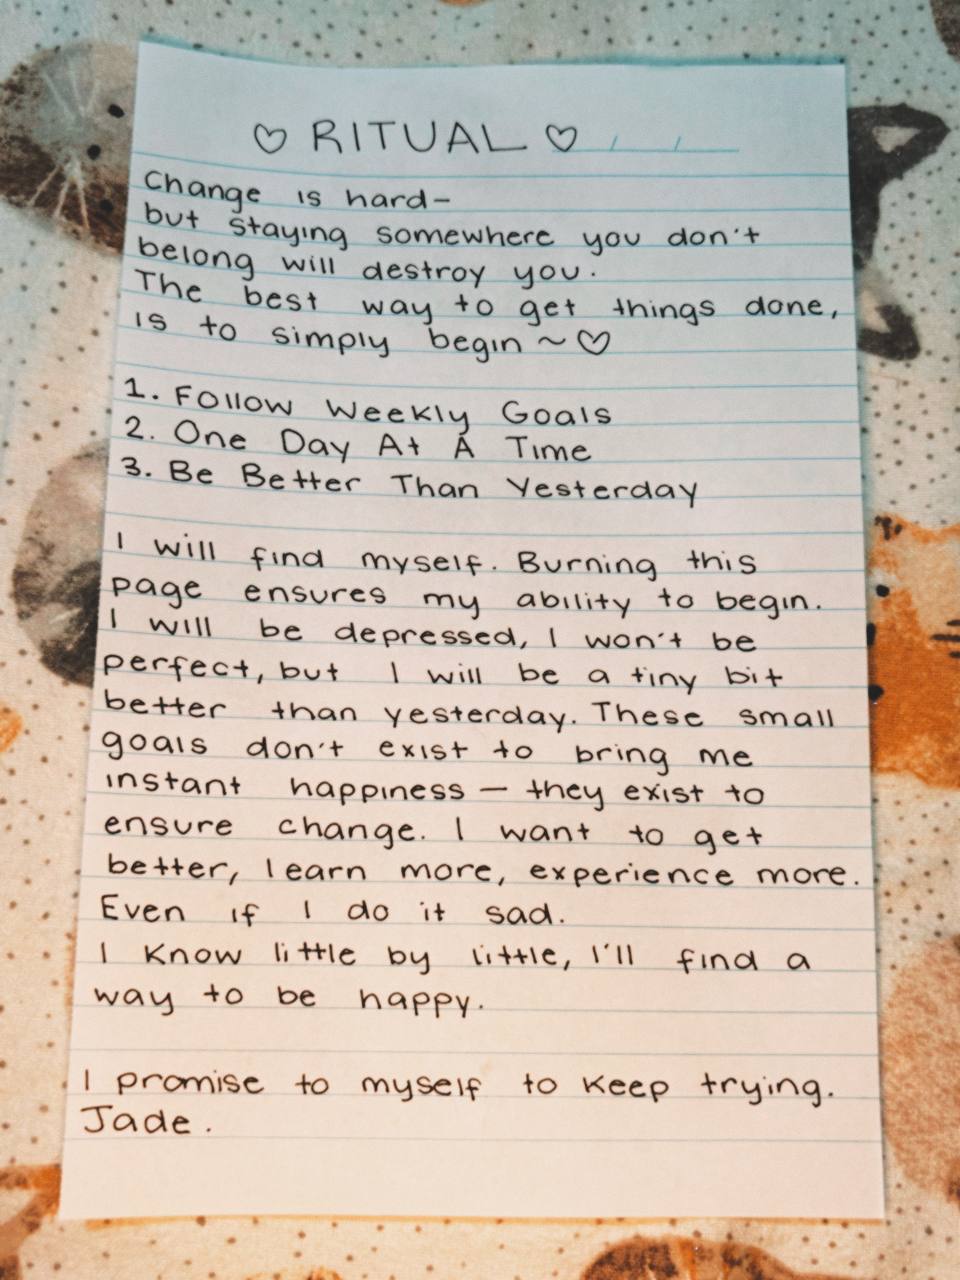 ♡ RITUAL ♡
Change is hard-
but staying somewhere you don't
belong will destroy you.
The best way to get things done,
is to simply begin ~ ♡
1. Follow Weekly Goals
2. One Day At A Time
3. Be Better Than Yesterday
I will find myself. Burning this
page ensures my ability to begin.
I will be depressed, I won't be
perfect, but I will be a tiny bit
better than yesterday. These small
goals don't exist to bring me
instant happiness — they exist to
ensure change. I want to get
better, learn more, experience more.
Even if I do it sad.
I know little by little, I'll find a
way to be happy.
I promise to myself to keep trying.
Jade.